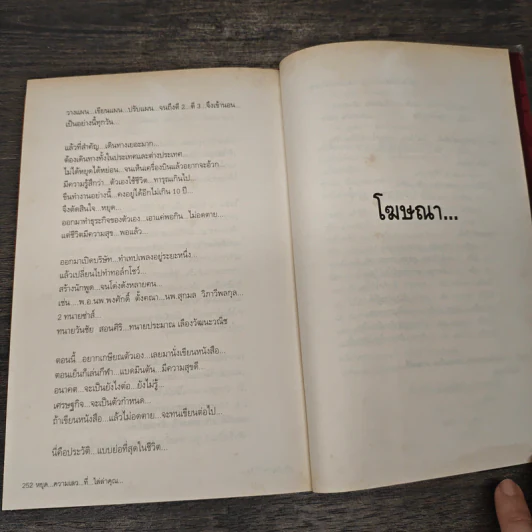 วางแผน...เขียนแผน...ปรับแผน...จนถึงตี 2...ตี 3...จึงเข้านอน...
เป็นอย่างนี้ทุกวัน...
แล้วที่สำคัญ...เดินทางเยอะมาก...
ต้องเดินทางทั้งในประเทศและต่างประเทศ...
ไม่ได้หยุดได้หย่อน...จนเห็นเครื่องบินแล้วอยากจะอ้วก...
มีความรู้สึกว่า...ตัวเองใช้ชีวิต...ทารุณเกินไป...
ขืนทำงานอย่างนี้...คงอยู่ได้อีกไม่เกิน 10 ปี...
จึงตัดสินใจ...หยุด...
ออกมาทำธุรกิจของตัวเอง...เอาแค่พอกิน...ไม่อดตาย...
แต่ชีวิตมีความสุข...พอแล้ว...
ออกมาเปิดบริษัท...ทำเทปเพลงอยู่ระยะหนึ่ง...
แล้วเปลี่ยนไปทำทอล์กโชว์...
สร้างนักพูด...จนโด่งดังหลายคน...
เช่น...พ.อ.นพ.พงศักดิ์ ตั้งคณา...นพ.สุกมล วิภาวีพลกุล...
2 ทนายซ่าส์...
ทนายวันชัย สอนศิริ...ทนายประมาณ เลืองวัฒนะวณิช
ตอนนี้...อยากเกษียณตัวเอง...เลยมานั่งเขียนหนังสือ...
ตอนเย็นก็เล่นกีฬา...แบดมินตัน...มีความสุขดี...
อนาคต...จะเป็นยังไงต่อ...ยังไม่รู้...
เศรษฐกิจ...จะเป็นตัวกำหนด...
ถ้าเขียนหนังสือ...แล้วไม่อดตาย...จะทนเขียนต่อไป...
นี่คือประวัติ...แบบย่อที่สุดในชีวิต...
252 หยุด...ความเลว...ที่...ไล่ล่าคุณ...
โฆษณา...